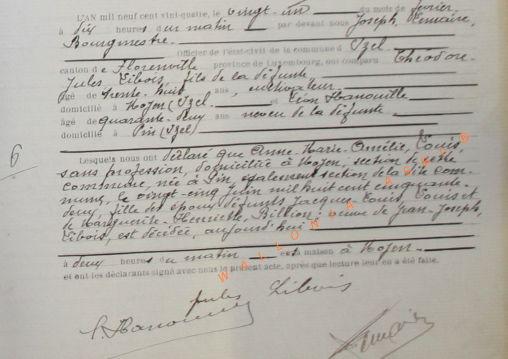 L'AN mil neuf cent vingt-quatre, le vingt-un du mois de février
à dix heures du matin par devant nous Joseph Lemaire,
Bourgmestre,
Officier de l'état-civil de la commune d'Izel
canton de Florenville province de Luxembourg, ont comparu Théodore-
Jules Libois, fils de la défunte
âgé de trente-huit ans, cultivateur
domicilié à Moyen (Izel) et Léon Hanouille
âgé de quarante-deux ans neveu de la défunte
domicilié à Pin (Izel)
Lesquels nous ont déclaré que Anne-Marie-Amélie, Louis,
6
sans profession, domiciliée à Moyen, section de cette
commune, née à Pin, également section de la dite com-
mune, le vingt-cinq Juin mil huit cent cinquante-
deux, fille des époux défunts Jacques-Louis, Louis et
de Marguerite-Henriette, Billion; veuve de Jean-Joseph,
Libois, est décédée, aujourd'hui
à deux heures du matin en sa maison à Moyen.
et ont les déclarants signé avec nous le présent acte, après que lecture leur en a été faite.
Jules Libois
L. Hanouille
Lemaire